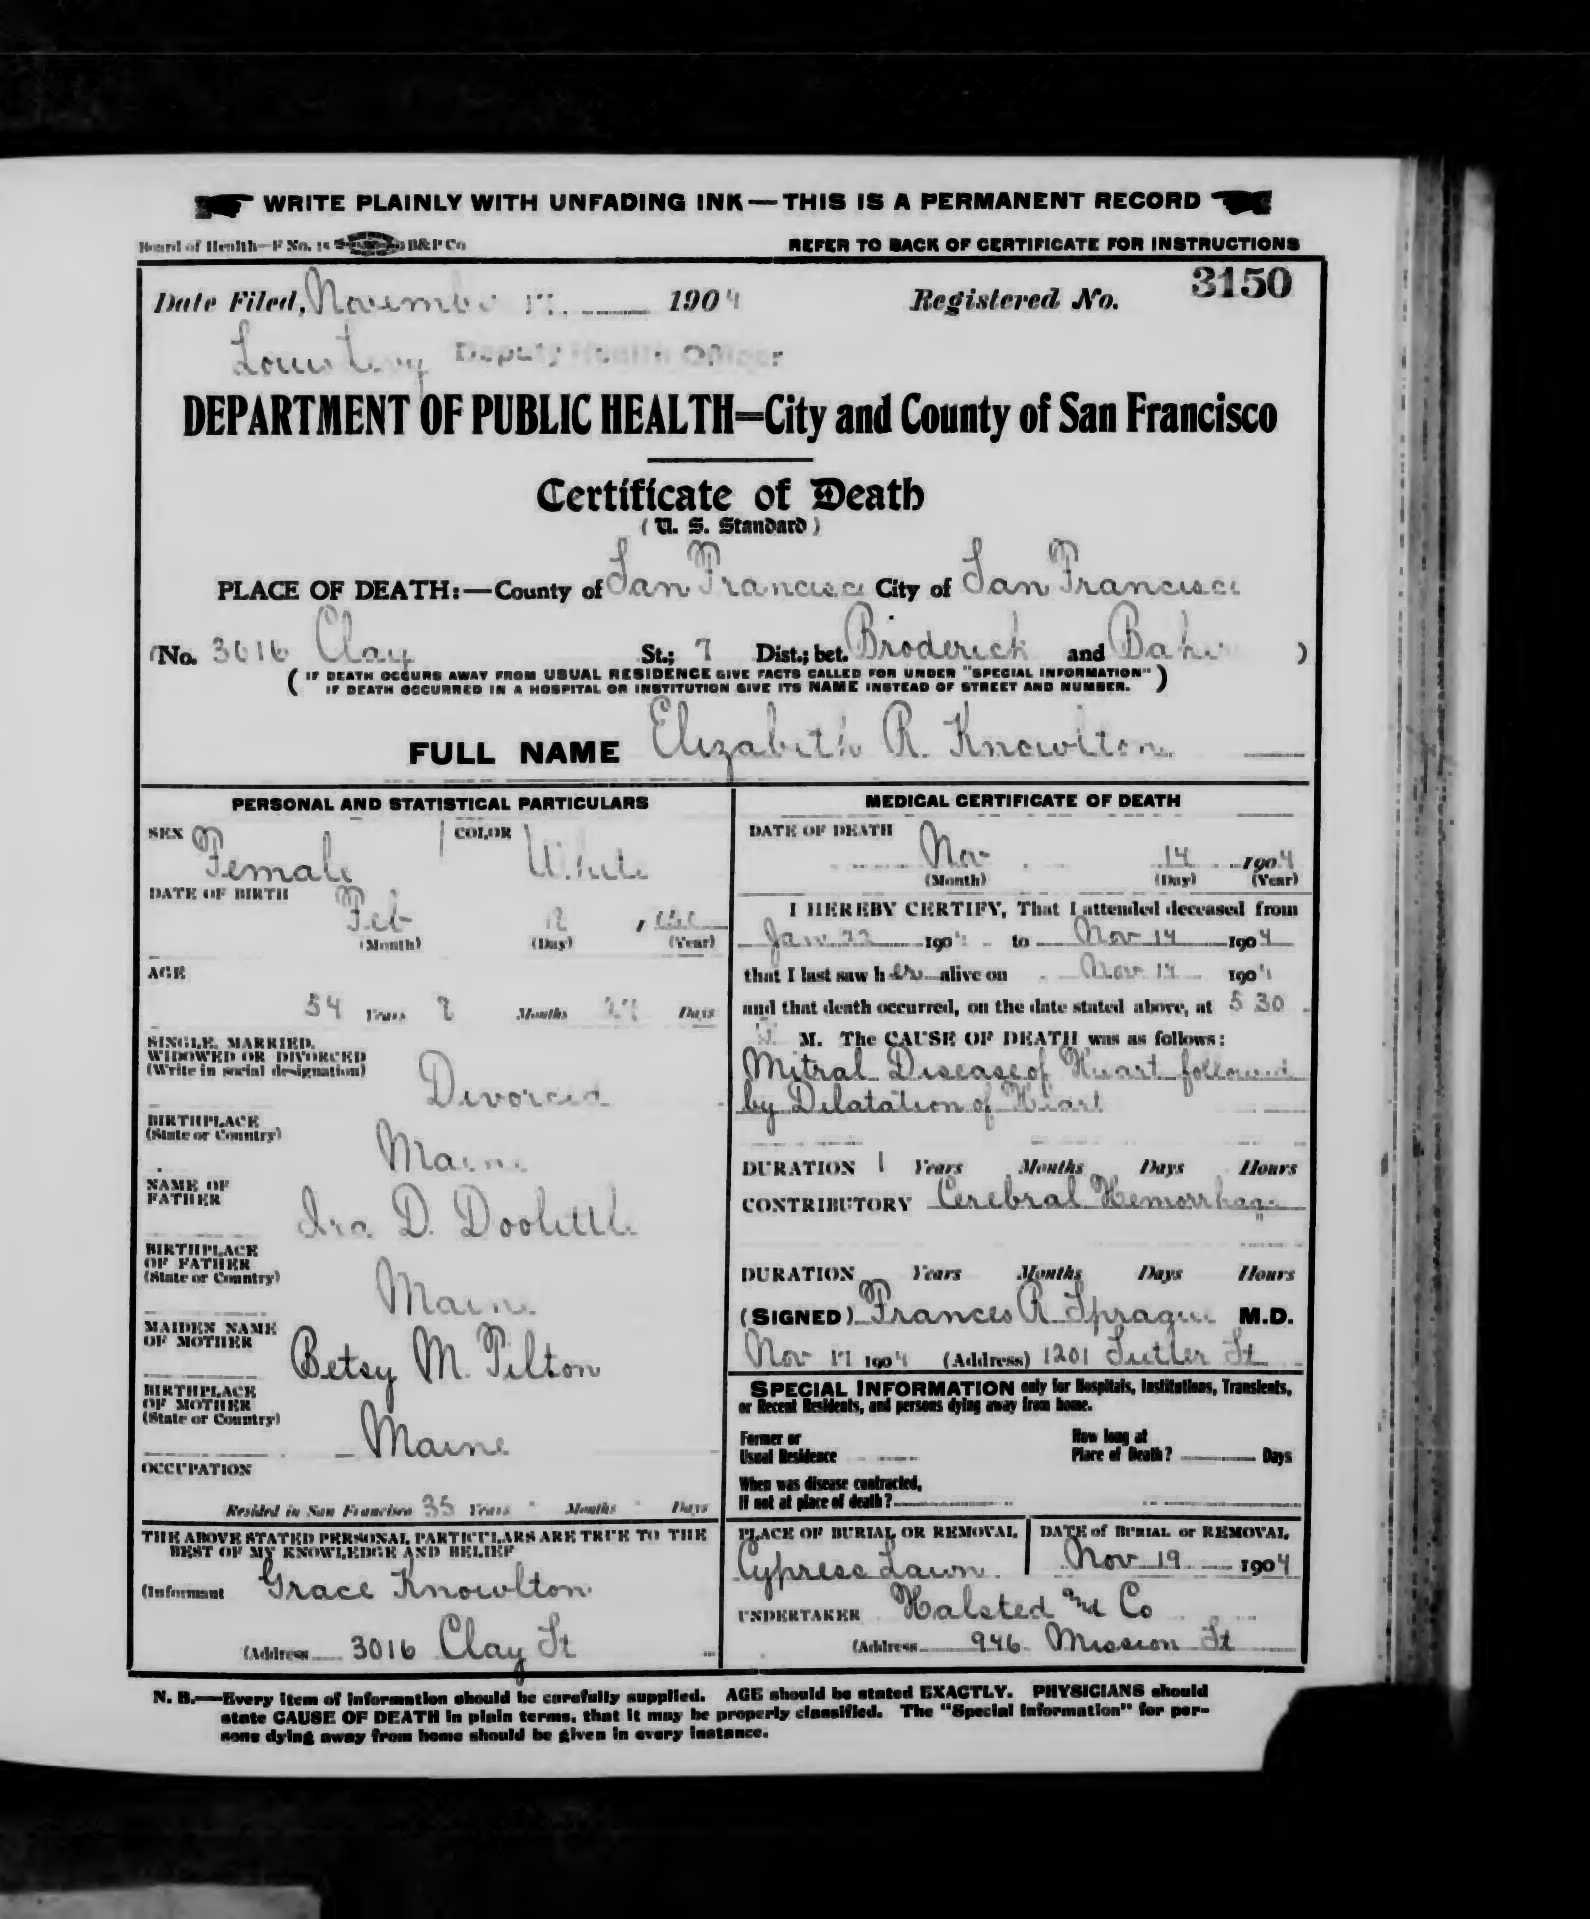 WRITE PLAINLY WITH UNFADING INK—THIS IS A PERMANENT RECORD
Board of Health—F No. 15 B&P Co REFER TO BACK OF CERTIFICATE FOR INSTRUCTIONS
Date Filed, November 17 1904 Registered No. 3150
Louis Levy Deputy Health Officer
DEPARTMENT OF PUBLIC HEALTH=City and County of San Francisco
Certificate of Death
(U. S. Standard)
PLACE OF DEATH:—County of San Francisco City of San Francisco
(No. 3016 Clay St.; 7 Dist.; bet. Broderick and Baker)
(IF DEATH OCCURS AWAY FROM USUAL RESIDENCE GIVE FACTS CALLED FOR UNDER "SPECIAL INFORMATION"
IF DEATH OCCURRED IN A HOSPITAL OR INSTITUTION GIVE ITS NAME INSTEAD OF STREET AND NUMBER.)
FULL NAME Elizabeth R. Knowlton
PERSONAL AND STATISTICAL PARTICULARS
SEX Female COLOR White
DATE OF BIRTH
Feb
(Month) (Day) (Year)
AGE
54 Years Months Days
SINGLE, MARRIED,
WIDOWED OR DIVORCED
(Write in social designation)
Divorced
BIRTHPLACE
(State or Country)
Maine
NAME OF
FATHER
Ira D. Doolittle
BIRTHPLACE
OF FATHER
(State or Country)
Maine
MAIDEN NAME
OF MOTHER
Betsy M. Tilton
BIRTHPLACE
OF MOTHER
(State or Country)
Maine
OCCUPATION
Resided in San Francisco 35 Years Months Days
THE ABOVE STATED PERSONAL PARTICULARS ARE TRUE TO THE
BEST OF MY KNOWLEDGE AND BELIEF
(Informant Grace Knowlton
(Address 3016 Clay St
MEDICAL CERTIFICATE OF DEATH
DATE OF DEATH
Nov 14 1904
(Month) (Day) (Year)
I HEREBY CERTIFY, That I attended deceased from
Jan 22 1904 to Nov 14 1904
that I last saw her alive on Nov 14 1904
and that death occurred, on the date stated above, at 5 30
M. The CAUSE OF DEATH was as follows:
Mitral Disease of Heart followed
by Dilatation of Heart
DURATION 1 Years Months Days Hours
CONTRIBUTORY Cerebral Hemorrhage
DURATION Years Months Days Hours
(SIGNED) Frances R Sprague M.D.
Nov 17 1904 (Address) 1201 Sutter St
SPECIAL INFORMATION only for Hospitals, Institutions, Transients,
or Recent Residents, and persons dying away from home.
Former or
Usual Residence
How long at
Place of Death? Days
When was disease contracted,
If not at place of death?
PLACE OF BURIAL OR REMOVAL
Cypress Lawn
DATE of BURIAL or REMOVAL
Nov 19 1904
UNDERTAKER Halsted and Co
(Address 946 Mission St
N. B.—Every item of information should be carefully supplied. AGE should be stated EXACTLY. PHYSICIANS should
state CAUSE OF DEATH in plain terms, that it may be properly classified. The "Special Information" for per-
sons dying away from home should be given in every instance.